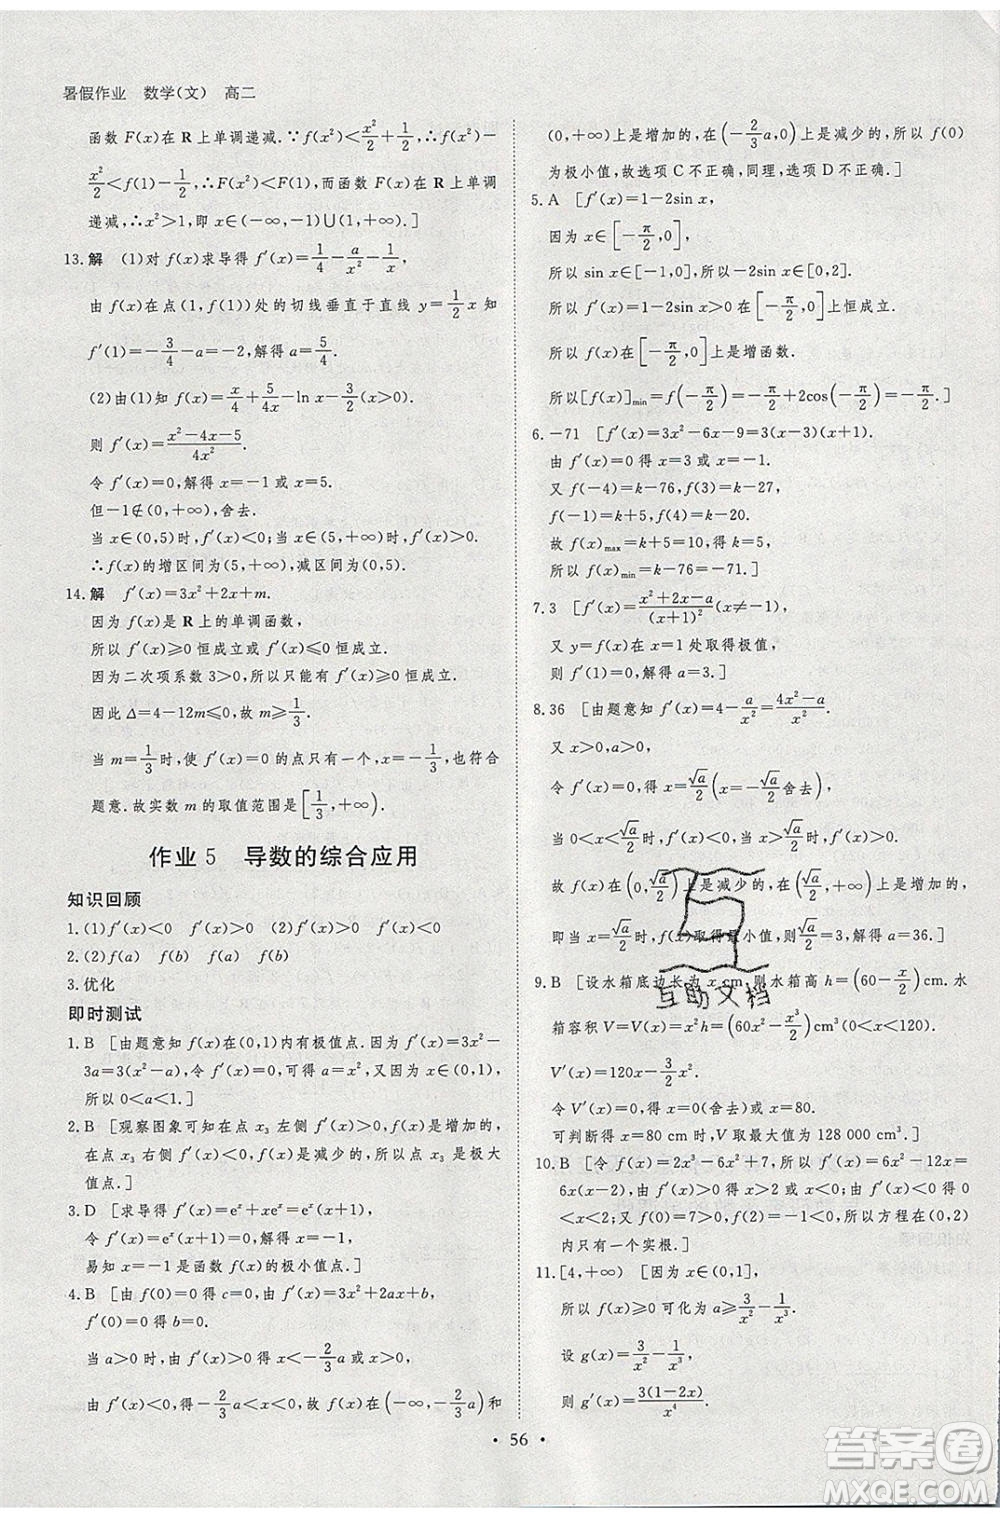 暑假作业 数学(文) 高二
函数 F(x) 在 R 上单调递减.∵f(x²)<x²/2+1/2,∴f(x²)−
x²/2<f(1)−1/2,∴F(x²)<F(1),而函数 F(x)在 R 上单调
递减,∴x²>1,即 x∈(−∞,−1)∪(1,+∞).]
13.解 (1)对 f(x)求导得 f′(x)=1/4−a/x²−1/x,
由 f(x)在点(1,f(1))处的切线垂直于直线 y=1/2x 知
f′(1)=−3/4−a=−2,解得 a=5/4.
(2)由(1)知 f(x)=x/4+5/4x−ln x−3/2,
则 f′(x)=(x²−4x−5)/4x².
令 f′(x)=0,解得 x=−1 或 x=5.
但−1∉(0,+∞),舍去.
当 x∈(0,5)时,f′(x)<0;当 x∈(5,+∞)时,f′(x)>0.
∴f(x)的增区间为(5,+∞),减区间为(0,5).
14.解 f′(x)=3x²+2x+m.
因为 f(x)是 R 上的单调函数,
所以 f′(x)≥0 恒成立或 f′(x)≤0 恒成立.
因为二次项系数 3>0,所以只能有 f′(x)≥0 恒成立.
因此 Δ=4−12m≤0,故 m≥1/3.
当 m=1/3时,使 f′(x)=0 的点只有一个 x=−1/3,也符合
题意.故实数 m 的取值范围是[1/3,+∞).
作业 5 导数的综合应用
知识回顾
1.(1)f′(x)<0 f′(x)>0 (2)f′(x)>0 f′(x)<0
2.(2)f(a) f(b) f(a) f(b)
3.优化
即时测试
1.B [由题意知 f(x)在(0,1)内有极值点.又 f′(x)=3x²−
3a=3(x²−a),令 f′(x)=0,x²=a,又 x∈(0,1),
所以 0<a<1.]
2.B [观察图象可知在点 x₃ 左侧 f(x)是增加的,
在点 x₃ 右侧,f(x)是减少的,所以点 x₃ 是极大
值点.]
3.D [求导得 f′(x)=eˣ+xeˣ=eˣ(x+1),
令 f′(x)=eˣ(x+1)=0,解得 x=−1,
易知 x=−1 是函数 f(x)的极小值点.]
4.B [由 f(0)=0 得 c=0,f′(x)=3x²+2ax+b.
因为 f′(0)=0 得 b=0,所以 f′(x)=x(3x+2a).
当 a>0 时,由 f′(x)>0 得 x<−2/3a 或 x>0,
由 f′(x)<0 得−2/3a<x<0,f(x)在(−∞,−2/3a)和
(0,+∞)上是增加的,在(−2/3a,0)上是减少的,所以 f(0)
为极小值,故选项 C 不正确,同理,选项 D 不正确.]
5.A [f′(x)=1−2sin x,
因为 x∈[−π/2,0],
所以 sin x∈[−1,0],所以−2sin x∈[0,2].
所以 f′(x)=1−2sin x>0 在[−π/2,0]上恒成立.
所以 f(x)在[−π/2,0]上是增函数.
所以[f(x)]min=f(−π/2)=−π/2+2cos(−π/2)=−π/2.]
6.−71 [f′(x)=3x²−6x−9=3(x−3)(x+1).
由 f′(x)=0 得 x=3 或 x=−1.
又 f(−4)=k−76,f(3)=k−27,
f(−1)=k+5,f(4)=k−20.
故 f(x)max=k+5=10,得 k=5,
所以 f(x)min=k−76=−71.]
7.3 [f′(x)=(x²+2x−a)/(x+1)²(x≠−1),
又 y=f(x)在 x=1 处取得极值,
则 f′(1)=0,解得 a=3.]
8.36 [由题意知 f′(x)=4−a/x²=(4x²−a)/x².
又 x>0,a>0,
令 f′(x)=0,得 x=√a/2(x=−√a/2舍去),
当 0<x<√a/2时,f′(x)<0;当 x>√a/2时,f′(x)>0.
故 f(x)在(0,√a/2)上是减少的,在(√a/2,+∞)上是增加的,
即当 x=√a/2时,f(x)取得最小值,则√a/2=3,a=36.]
9.B [设水箱底边长为 x cm,则水箱高 h=(60−x/2)cm.水
箱容积 V=V(x)=x²h=(60x²−x³/2)cm³(0<x<120).
V′(x)=120x−3/2x².
令 V′(x)=0,得 x=0(舍去)或 x=80.
可判断得 x=80 cm 时,V 取最大值为 128 000 cm³.]
10.B [令 f(x)=2x³−6x²+7,所以 f′(x)=6x²−12x=
6x(x−2),由 f′(x)>0 得 x>2 或 x<0;由 f′(x)<0 得 0
<x<2;又 f(0)=7>0,f(2)=−1<0,所以方程在(0,2)
内有一个实根.]
11.[4,+∞) [因为 x∈(0,1],
所以 f(x)≥0 可化为 a≥3/x²−1/x³.
设 g(x)=3/x²−1/x³,
则 g′(x)=3(1−2x)/x⁴.
• 56 •
互助文档
答案卷
MXQE.COM